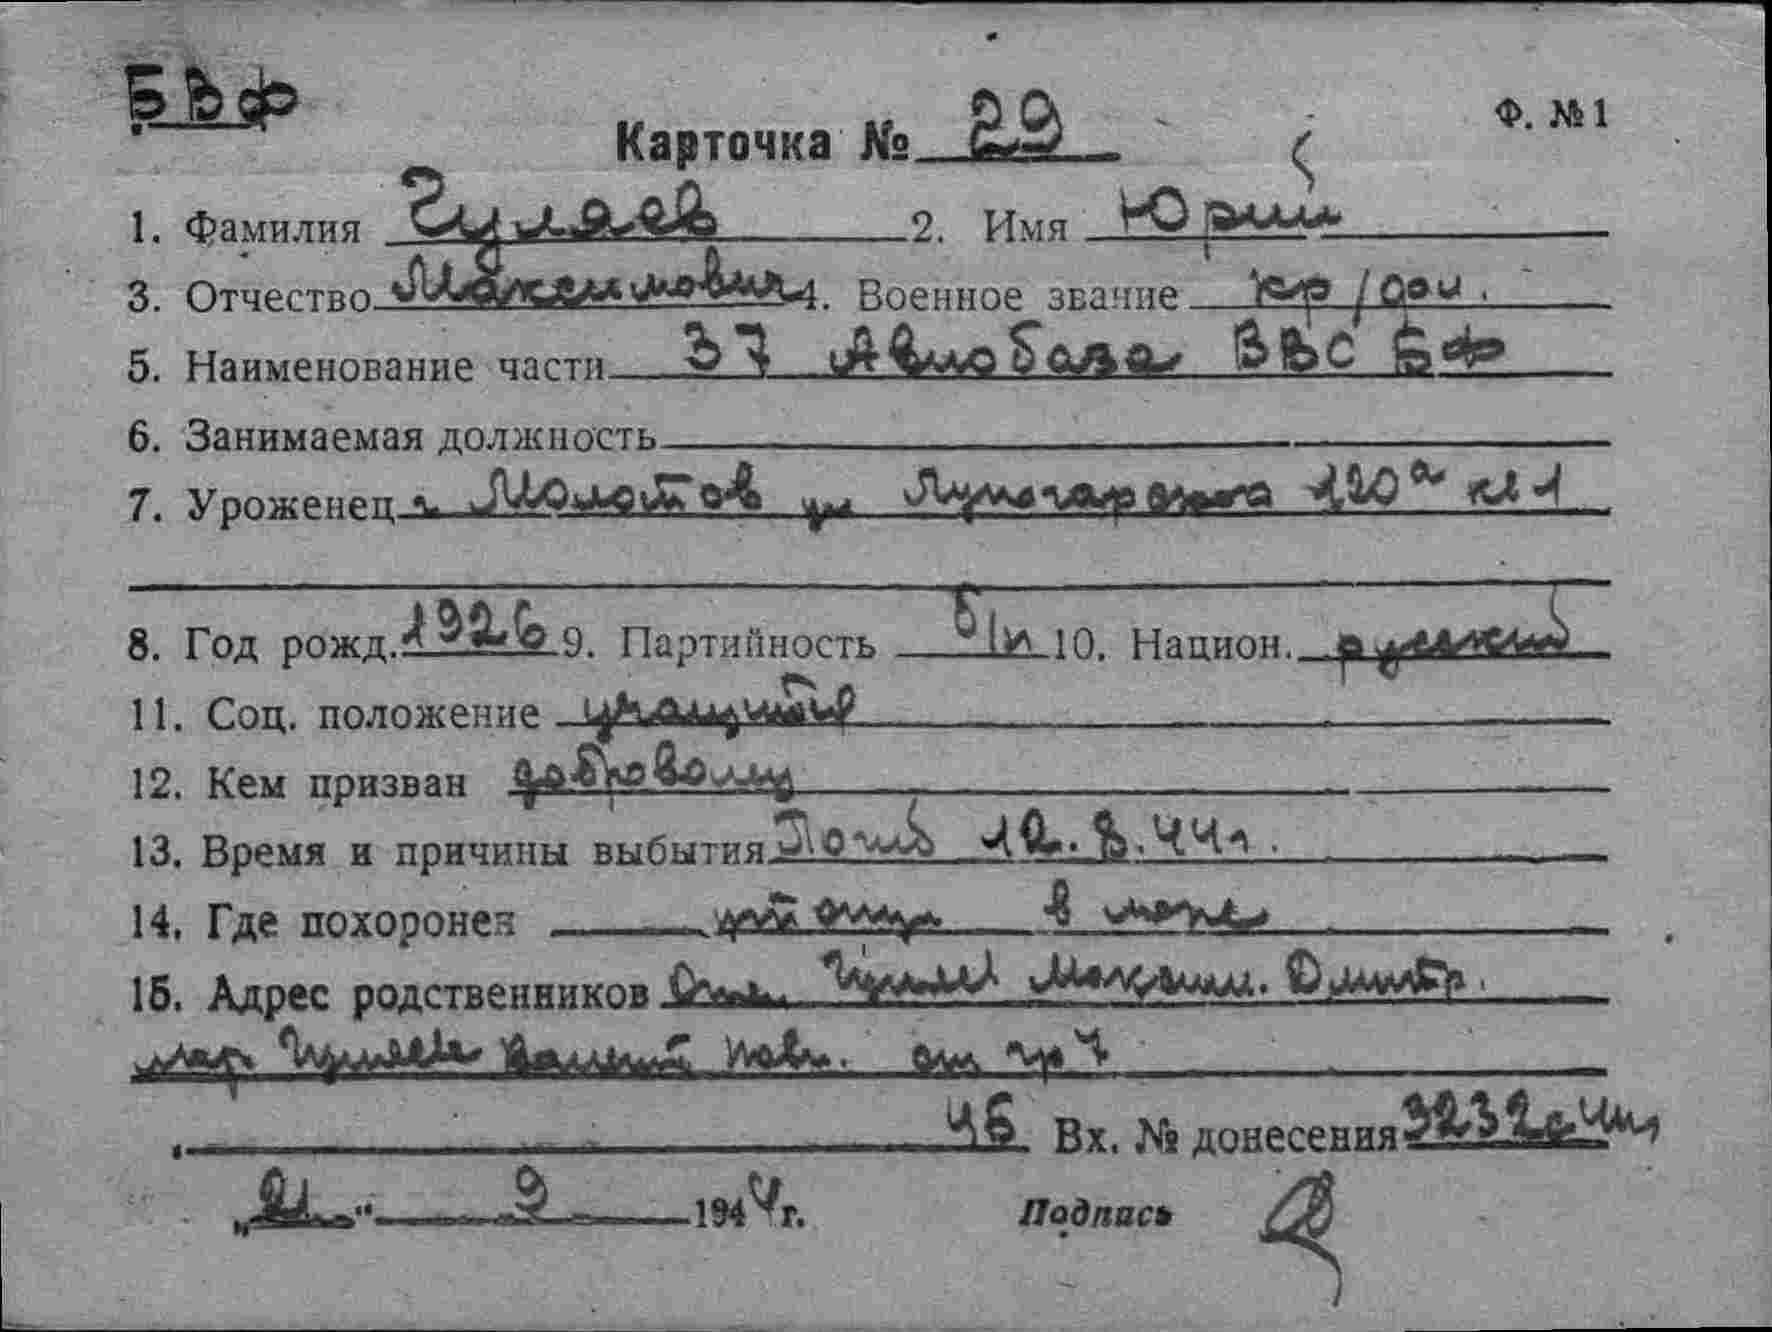 БВФ
Ф. №1
Карточка № 29
1. Фамилия Гуляев 2. Имя Юрий
3. Отчество Максимович 4. Военное звание кр/фл.
5. Наименование части 37 Авиобаза ВВС БФ
6. Занимаемая должность
7. Уроженец г. Молотов ул Луначарского 120а кв 1
8. Год рожд. 1926 9. Партийность б/п 10. Национ. русский
11. Соц. положение учащийся
12. Кем призван доброволец
13. Время и причины выбытия Погиб 12.8.44г.
14. Где похоронен утонул в море
15. Адрес родственников Отец Гуляев Максим. Дмитр.
мат. Гуляева
46 Вх. № донесения 3232с
„21“ 9 1944г. Подпись